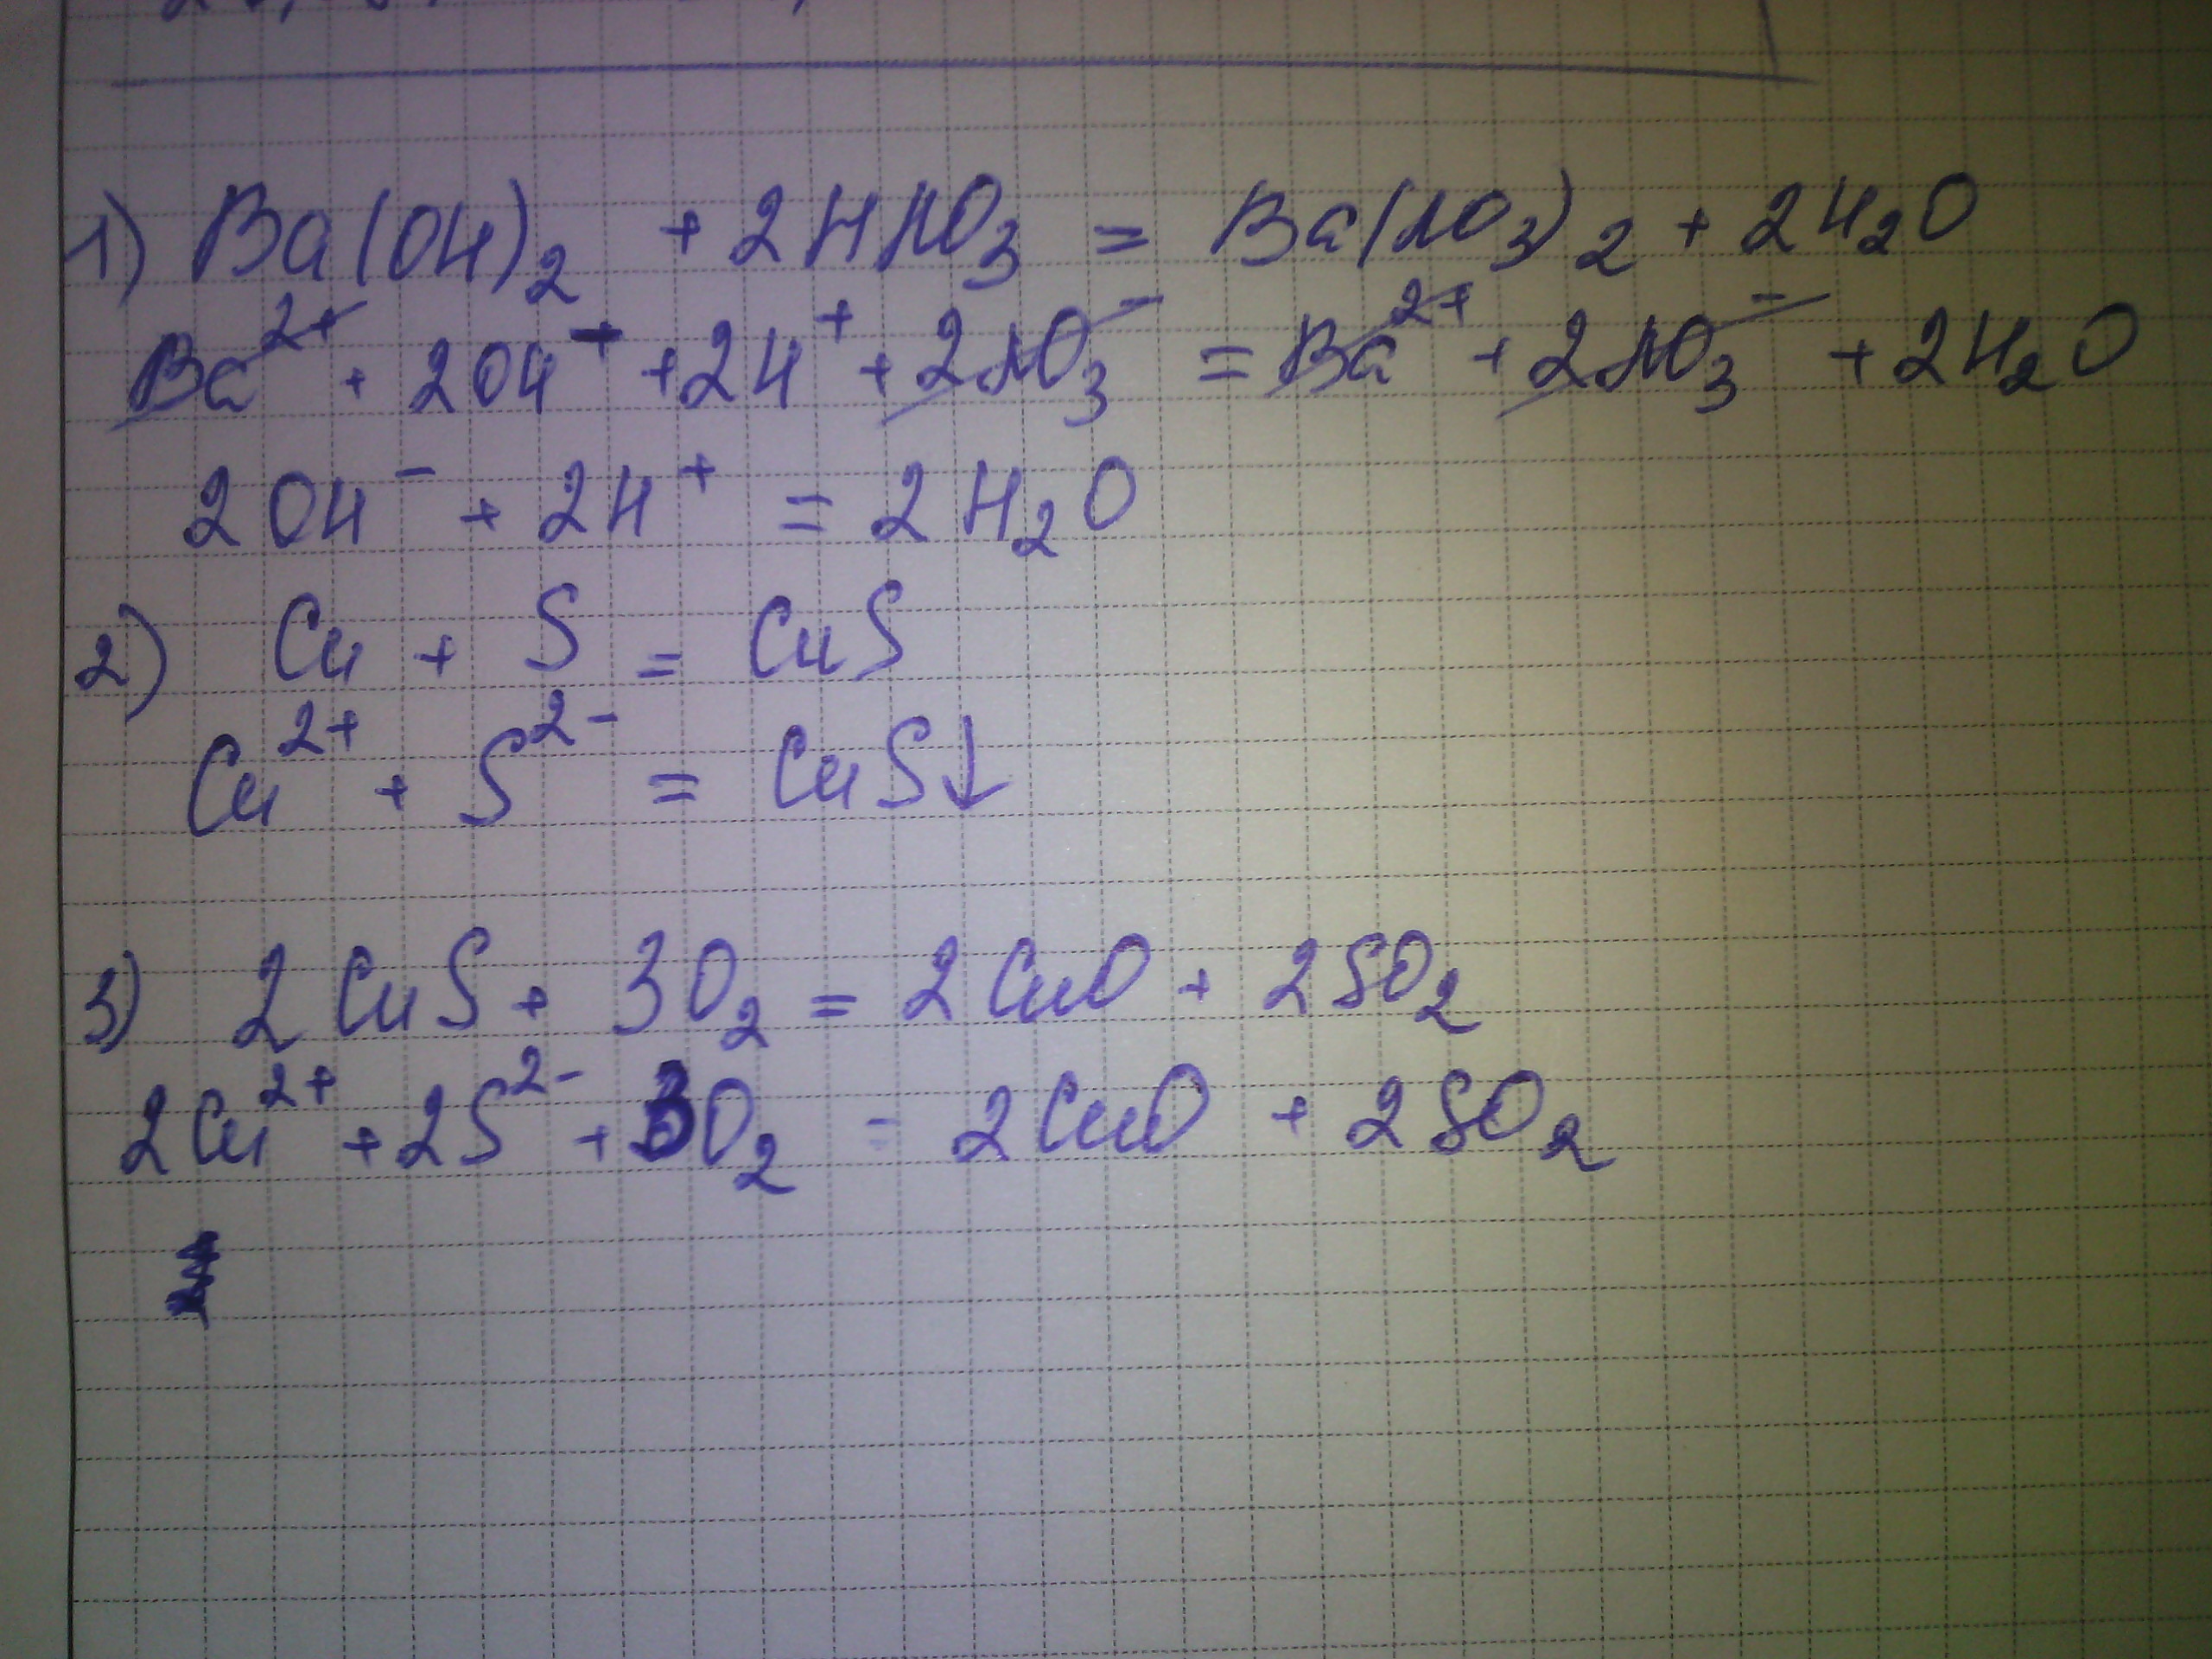 1) Ba(OH)₂ + 2HNO₃ = Ba(NO₃)₂ + 2H₂O
Ba²⁺ + 2OH⁻ + 2H⁺ + 2NO₃⁻ = Ba²⁺ + 2NO₃⁻ + 2H₂O
2OH⁻ + 2H⁺ = 2H₂O
2) Cu + S = CuS
Cu²⁺ + S²⁻ = CuS↓
3) 2CuS + 3O₂ = 2CuO + 2SO₂
2Cu²⁺ + 2S²⁻ + 3O₂ = 2CuO + 2SO₂